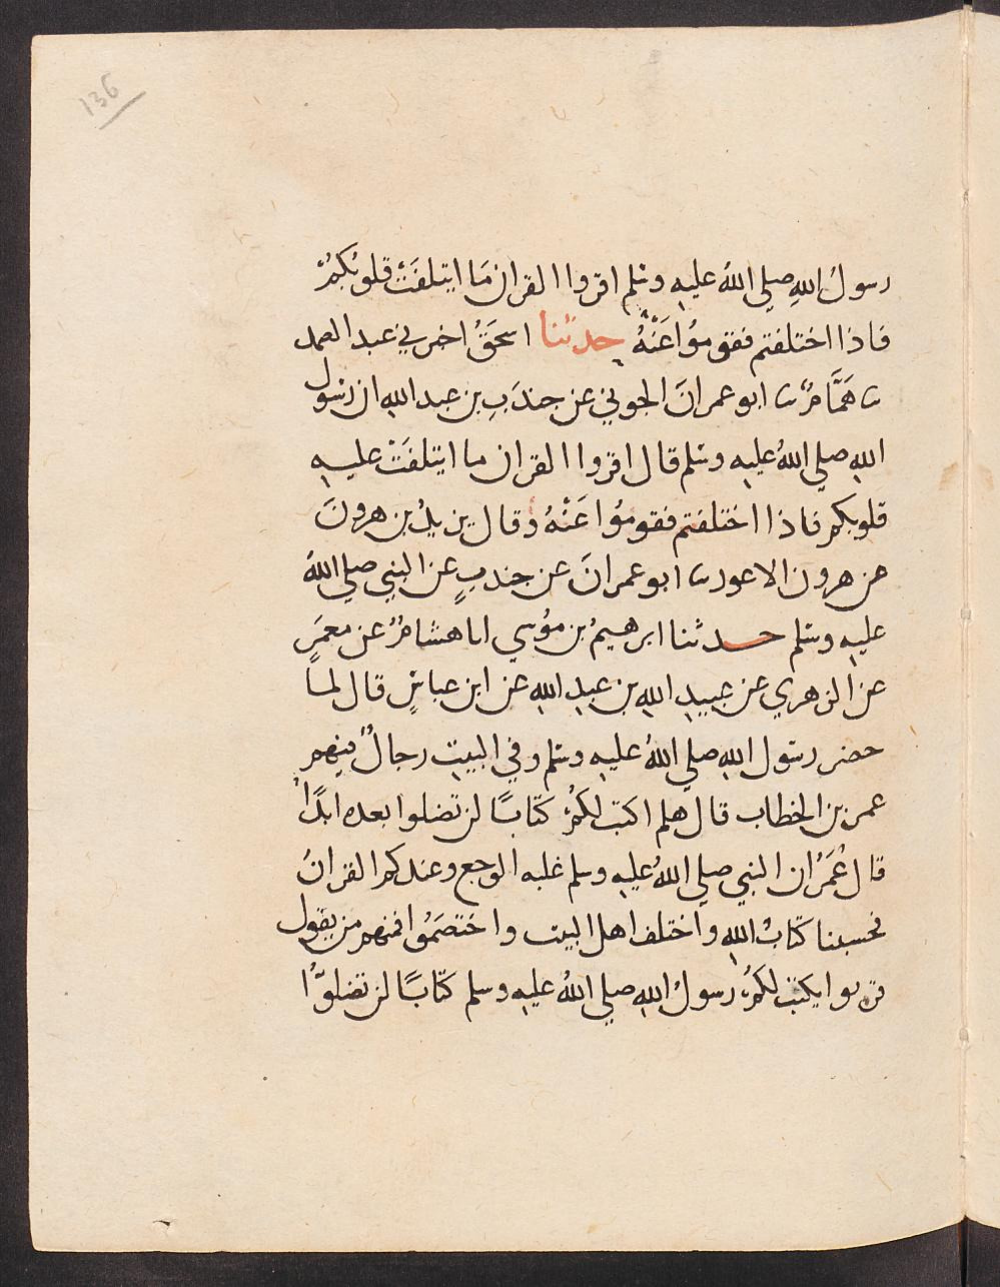 136
رسولُ اللهِ صلي اللهُ عليهِ وسلم اقروا القران مَا ايتلفَتْ قلوبُكُمْ
فاذا اختلفتم فقومُوا عَنْهُ حدثنا اسحَقُ اخبرني عبد الصمد
ثنا هَمَّامٌ ثنا ابو عمرانَ الجوني عن جندَبِ بن عبد اللهِ ان رسول
اللهِ صلي اللهُ عليهِ وسلم قال اقروا القران ما ايتلفَتْ عليهِ
قلوبكم فاذا اختلفتم فقومُوا عَنْهُ وقال يزيدُ بن هرونَ
عن هرون الاعور ثنا ابو عمرانَ عن جندبٍ عن النبي صلي اللهُ
عليهِ وسلم حدثنا ابرهيمُ بن مُوسي انا هشامٌ عن معمَرٍ
عن الزهري عن عبيدِ اللهِ بن عبدِ اللهِ عن ابن عباسٍ قال لما
حضر رسول اللهِ صلي اللهُ عليهِ وسلم وفي البيتِ رجالٌ منهم
عمر بن الخطاب قال هلم اكتب لكمْ كتابًا لن تضلوا بعده ابدًا
قال عُمَرُ ان النبي صلي اللهُ عليهِ وسلم غلبه الوجع وعندكم القرانُ
فحسبنا كتابُ اللهِ واختلف اهل البيت واختصَمُوا فمنهم من يقول
قربوا يكتب لكمْ رسولُ اللهِ صلي اللهُ عليهِ وسلم كتابًا لن تضلوا